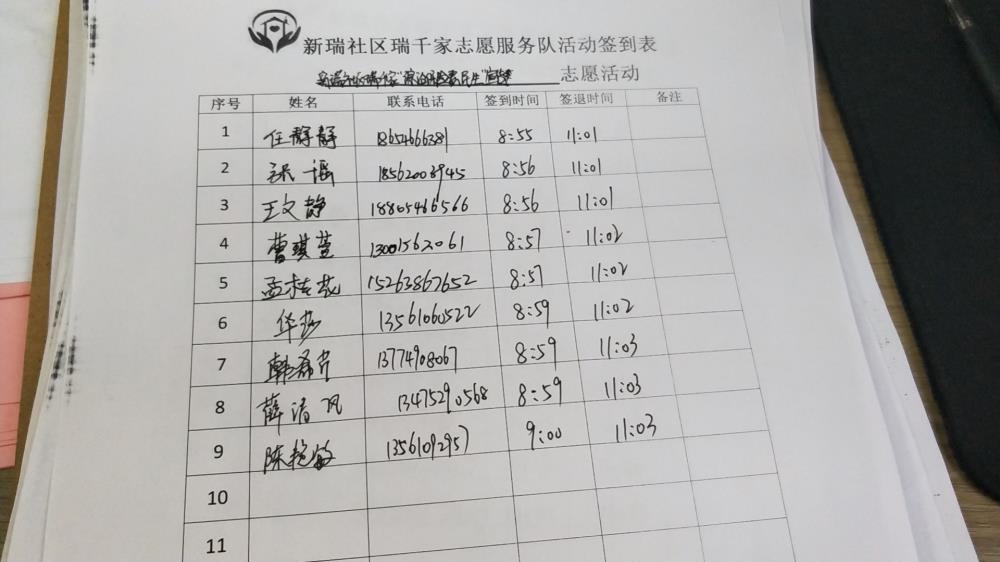 新瑞社区瑞千家志愿服务队活动签到表
志愿活动
序号 姓名 联系电话 签到时间 签退时间 备注
1 任静静 18654666381 8:55 11:01
2 张瑶 18562003945 8:56 11:01
3 王文静 18805466566 8:56 11:01
4 曹琪萱 13001562061 8:57 11:02
5 孟桂花 15263867652 8:57 11:02
6 华莎 13561060522 8:59 11:02
7 韩希芹 13774908067 8:59 11:03
8 薛清风 13475290568 8:59 11:03
9 陈艳敏 13561092957 9:00 11:03
10
11